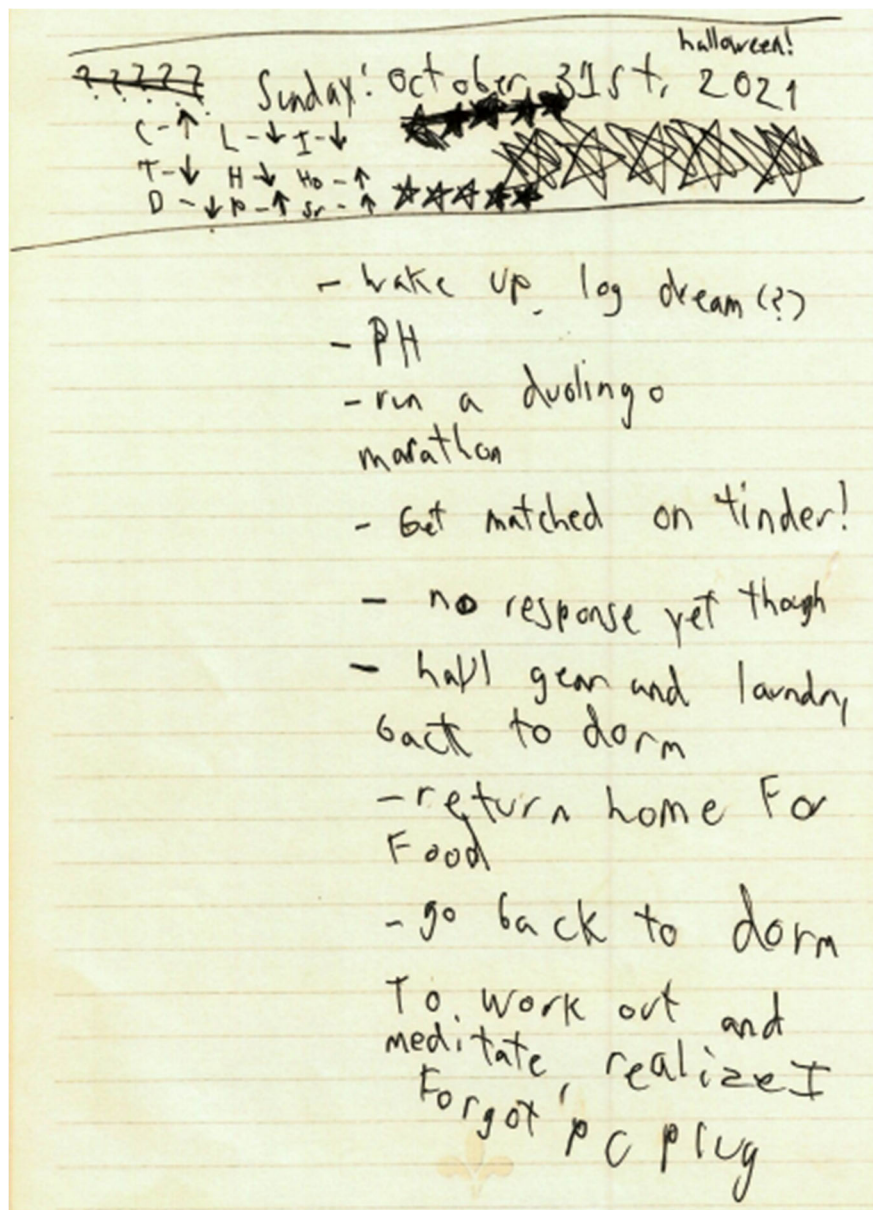 halloween!
????? Sunday: October, 31st, 2021
C-↑ L-↓ I-↓
T-↓ H↓ Ho-↑
D-↓ P-↑ Sr-↑
- wake up, log dream (?)
- PH
- run a duolingo
marathon
- Get matched on tinder!
- no response yet though
- haul gear and laundry
back to dorm
- return home For
Food
- go back to dorm
To work out and
meditate, realize I
Forgot PC plug